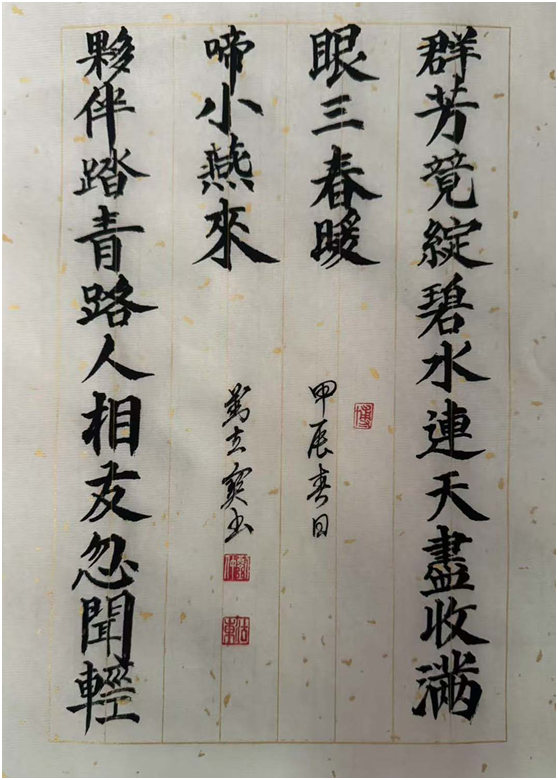 群芳竟綻碧水連天盡收滿
眼三春暖
夥伴踏青路人相友忽聞輕
啼小燕來
甲辰春日